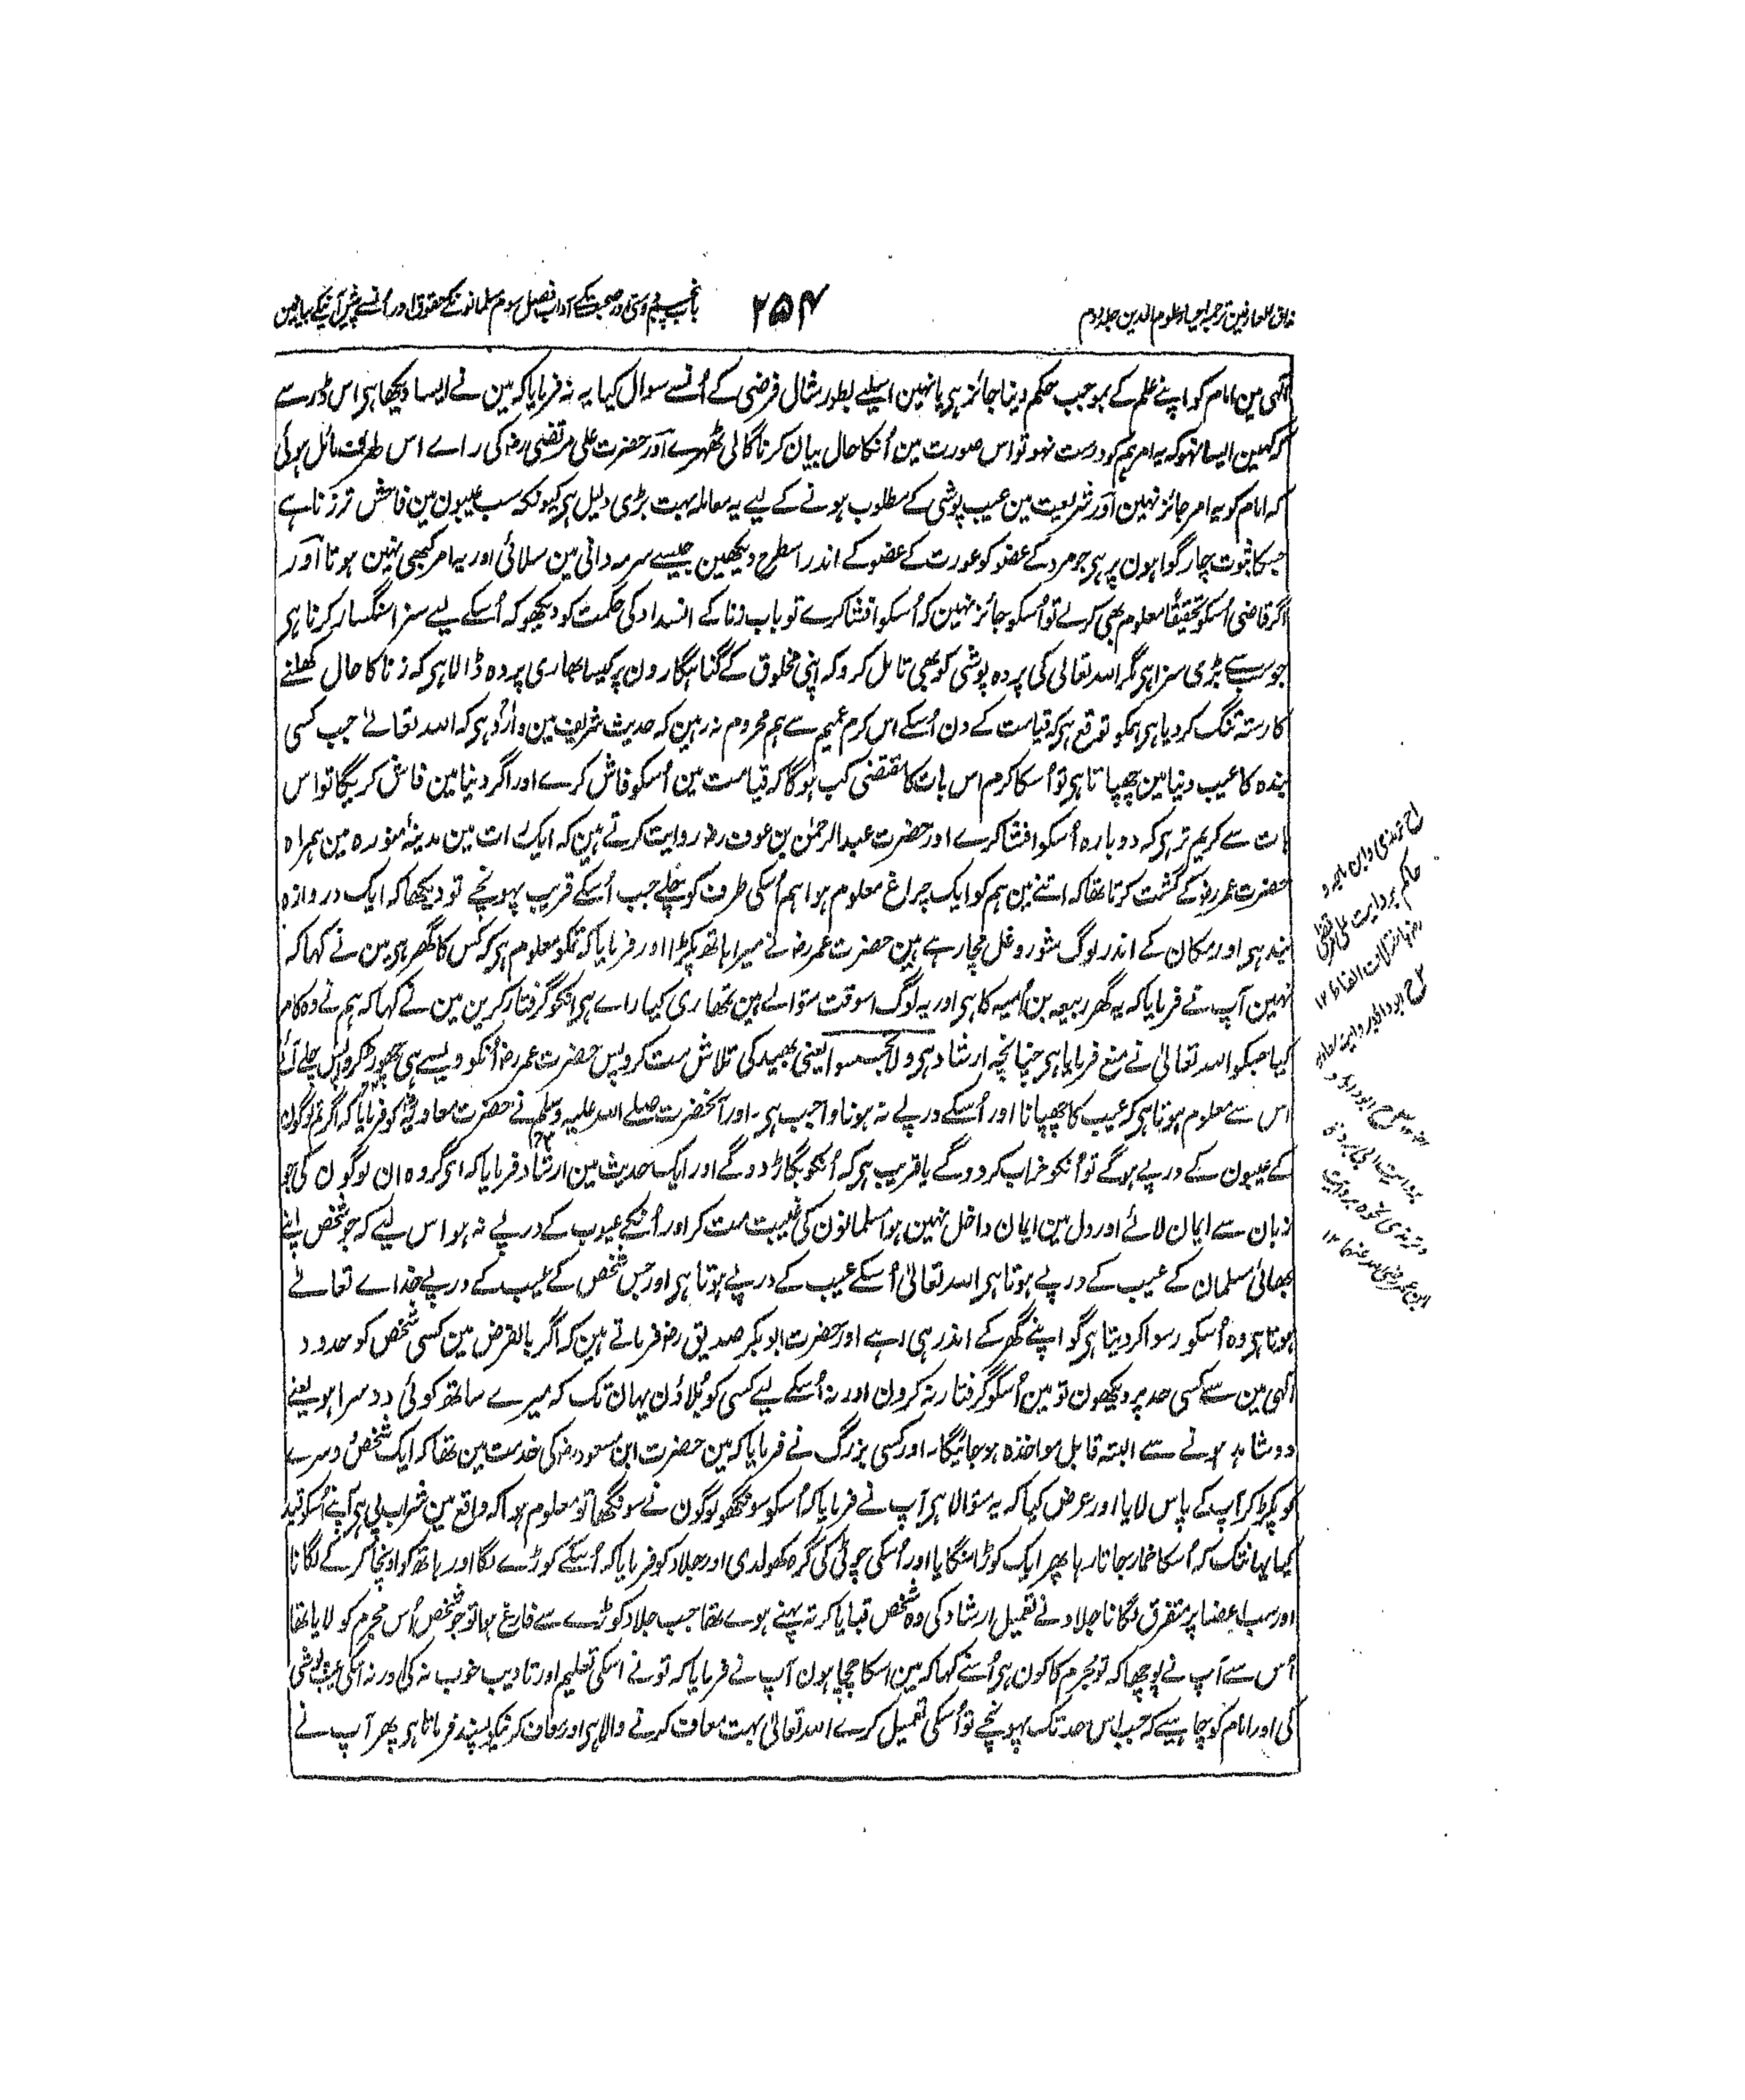 مذاق العارفین ترجمہ احیاء علوم الدین جلد دوم
۲۵۴
باب پنجم دوستی اور صحبت کے آداب فصل سوم مسلمانونکے حقوق اور اُنسے پیش آنیکے بیانمین
آلٰہی مین امام کو اپنے علم کے بموجب حکم دینا جائز ہی یا نہین اسلیے بطور مثال فرضی کے اُنسے سوال کیا یہ نہ فرمایا کہ مین نے ایسا دیکھا ہی اس ڈر سے
کہ کہین ایسا نہو کہ یہ امر ہم کو درست نہو تو اس صورت مین اُنکا حال بیان کرنا گالی ٹھہرے آور حضرت علی مرتضیٰ رضہ کی راے اس طرف مائل ہوئی
کہ امام کو یہ امر جائز نہین آور شریعت مین عیب پوشی کے مطلوب ہونے کے لیے یہ معاملہ بہت بڑی دلیل ہی کیونکہ سب عیبون مین فاحش تر زنا ہے
جسکا ثبوت چار گواہون پر ہی جو مرد کے عضو کو عورت کے عضو کے اندر اسطرح دیکھین جیسے سرمہ دانی مین سلائی اور یہ امر کبھی نہین ہوتا آور
اگر قاضی اُسکو تحقیقاً معلوم بھی کرلے تو اُسکو جائز نہین کہ اُسکو افشا کرے تو باب زنا کے انسداد کی حکمت کو دیکھو کہ اُسکے لیے سزا سنگسار کرنا ہی
جو سب سے بڑی سزا ہی مگر اللہ تعالی کی پردہ پوشی کو بھی تامل کرو کہ اپنی مخلوق کے گناہگارون پر کیسا بھاری پردہ ڈالا ہی کہ زنا کا حال کھلنے
کا رستہ تنگ کردیا ہی ہمکو توقع ہی کہ قیامت کے دن اُسکے اس کرم عمیم سے ہم محروم نہ رہین کہ حدیث شریف مین وارد ہی کہ اللہ تعالےٰ جب کسی
بندہ کا عیب دنیا مین چھپاتا ہی تو اُسکا کرم اس بات کا مقتضی کب ہوگا کہ قیامت مین اُسکو فاش کرے اور اگر دنیا مین فاش کریگا تو اس
بات سے کریم تر ہی کہ دوبارہ اُسکو افشا کرے اور حضرت عبدالرحمٰن بن عوف رضہ روایت کرتے ہین کہ ایک رات مین مدینۂ منورہ مین ہمراہ
حضرت عمر رضہ کے گشت کرتا تھا کہ اتنے مین ہم کو ایک چراغ معلوم ہوا ہم اُسکی طرف کو چلے جب اُسکے قریب پہونچے تو دیکھا کہ ایک دروازہ
بند ہی اور مکان کے اندر لوگ شور و غل مچا رہے ہین حضرت عمر رضہ نے میرا ہاتھ پکڑا اور فرمایا کہ تمکو معلوم ہی کہ کس کا گھر ہی مین نے کہا کہ
نہین آپ نے فرمایا کہ یہ گھر ربیعہ بن اُمیہ کا ہی اور یہ لوگ اسوقت متوالے ہین تمھاری کیا راے ہی انکو گرفتار کرین مین نے کہا کہ ہم نے وہ کام
کیا جسکو اللہ تعالیٰ نے منع فرمایا ہی چنانچہ ارشاد ہی ولا تجسسوا یعنی بھید کی تلاش مت کرو پس حضرت عمر رضہ اُنکو ویسے ہی چھوڑ کر واپس چلے آئے
اس سے معلوم ہوتا ہی کہ عیب کا چھپانا اور اُسکے درپے نہ ہونا واجب ہی۔ اور آنحضرت صلے اللہ علیہ وسلم نے حضرت معاویہ رضہ کو فرمایا کہ اگر تم لوگون
کے عیبون کے درپے ہوگے تو اُنکو خراب کردوگے یا قریب ہی کہ اُنکو بگاڑ دوگے اور ایک حدیث مین ارشاد فرمایا کہ ای گروہ ان لوگون کی جو
زبان سے ایمان لائے اور دل مین ایمان داخل نہین ہوا مسلمانون کی غیبت مت کرو اور اُنکے عیوب کے درپے نہ ہو اس لیے کہ جو شخص اپنے
بھائی مسلمان کے عیب کے درپے ہوتا ہی اللہ تعالیٰ اُسکے عیب کے درپے ہوتا ہی اور جس شخص کے عیب کے درپے خداے تعالےٰ
ہوتا ہی وہ اُسکو رسوا کردیتا ہی گو اپنے گھر کے اندر ہی رہے اور حضرت ابوبکر صدیق رضہ فرماتے ہین کہ اگر بالفرض مین کسی شخص کو حدود
آلٰہی مین سے کسی حد پر دیکھون تو مین اُسکو گرفتار نہ کرون اور نہ اُسکے لیے کسی کو بُلاؤن یہان تک کہ میرے ساتھ کوئی دوسرا ہو یعنے
دو شاہد ہونے سے البتہ قابل مواخذہ ہوجائیگا۔ اور کسی بزرگ نے فرمایا کہ مین حضرت ابن مسعود رضہ کی خدمت مین تھا کہ ایک شخص دوسرے
کو پکڑ کر آپ کے پاس لایا اور عرض کیا کہ یہ متوالا ہی آپ نے فرمایا کہ اُسکو سونگھو لوگون نے سونگھا تو معلوم ہوا کہ واقع مین شراب پی ہی آپنے اُسکو قید
کیا یہانتک کہ اُسکا خمار جاتا رہا پھر ایک کوڑا منگایا اور اُسکی چوٹی کی گرہ کھولدی اور جلاد کو فرمایا کہ اُسکے کوڑے لگا اور ہاتھ کو اونچا کر کے لگانا
اور سب اعضا پر متفرق لگانا جلاد نے تعمیل ارشاد کی وہ شخص قبا یا کرتہ پہنے ہوے تھا جب جلاد کوڑے سے فارغ ہوا تو جو شخص اُس مجرم کو لایا تھا
اُس سے آپ نے پوچھا کہ تو مجرم کا کون ہی اُسنے کہا کہ مین اسکا چچا ہون آپ نے فرمایا کہ تو نے اسکی تعلیم اور تادیب خوب نہ کی اور نہ اسکی عیب پوشی
کی اور امام کو چاہیے کہ جب اس حد تک پہونچے تو اُسکی تعمیل کرے اللہ تعالیٰ بہت معاف کرنے والا ہی اور معاف کرنیکو پسند فرماتا ہی پھر آپ نے
ترمذی و ابن ماجہ و
حاکم بروایت علی مرتضی